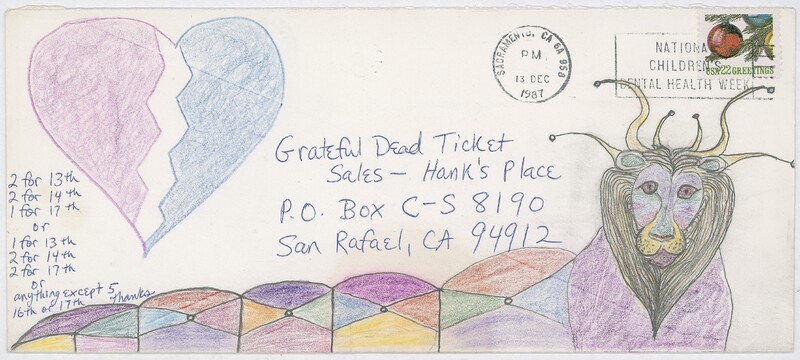 SACRAMENTO, CA GA 958
PM
13 DEC
1987
NATIONAL
CHILDREN'S
DENTAL HEALTH WEEK
USA 22 GREETINGS
Grateful Dead Ticket
Sales - Hank's Place
P.O. Box C-S 8190
San Rafael, CA 94912
2 for 13th
2 for 14th
1 for 17th
or
1 for 13th
2 for 14th
2 for 17th
or
anything except 5
16th or 17th Thanks